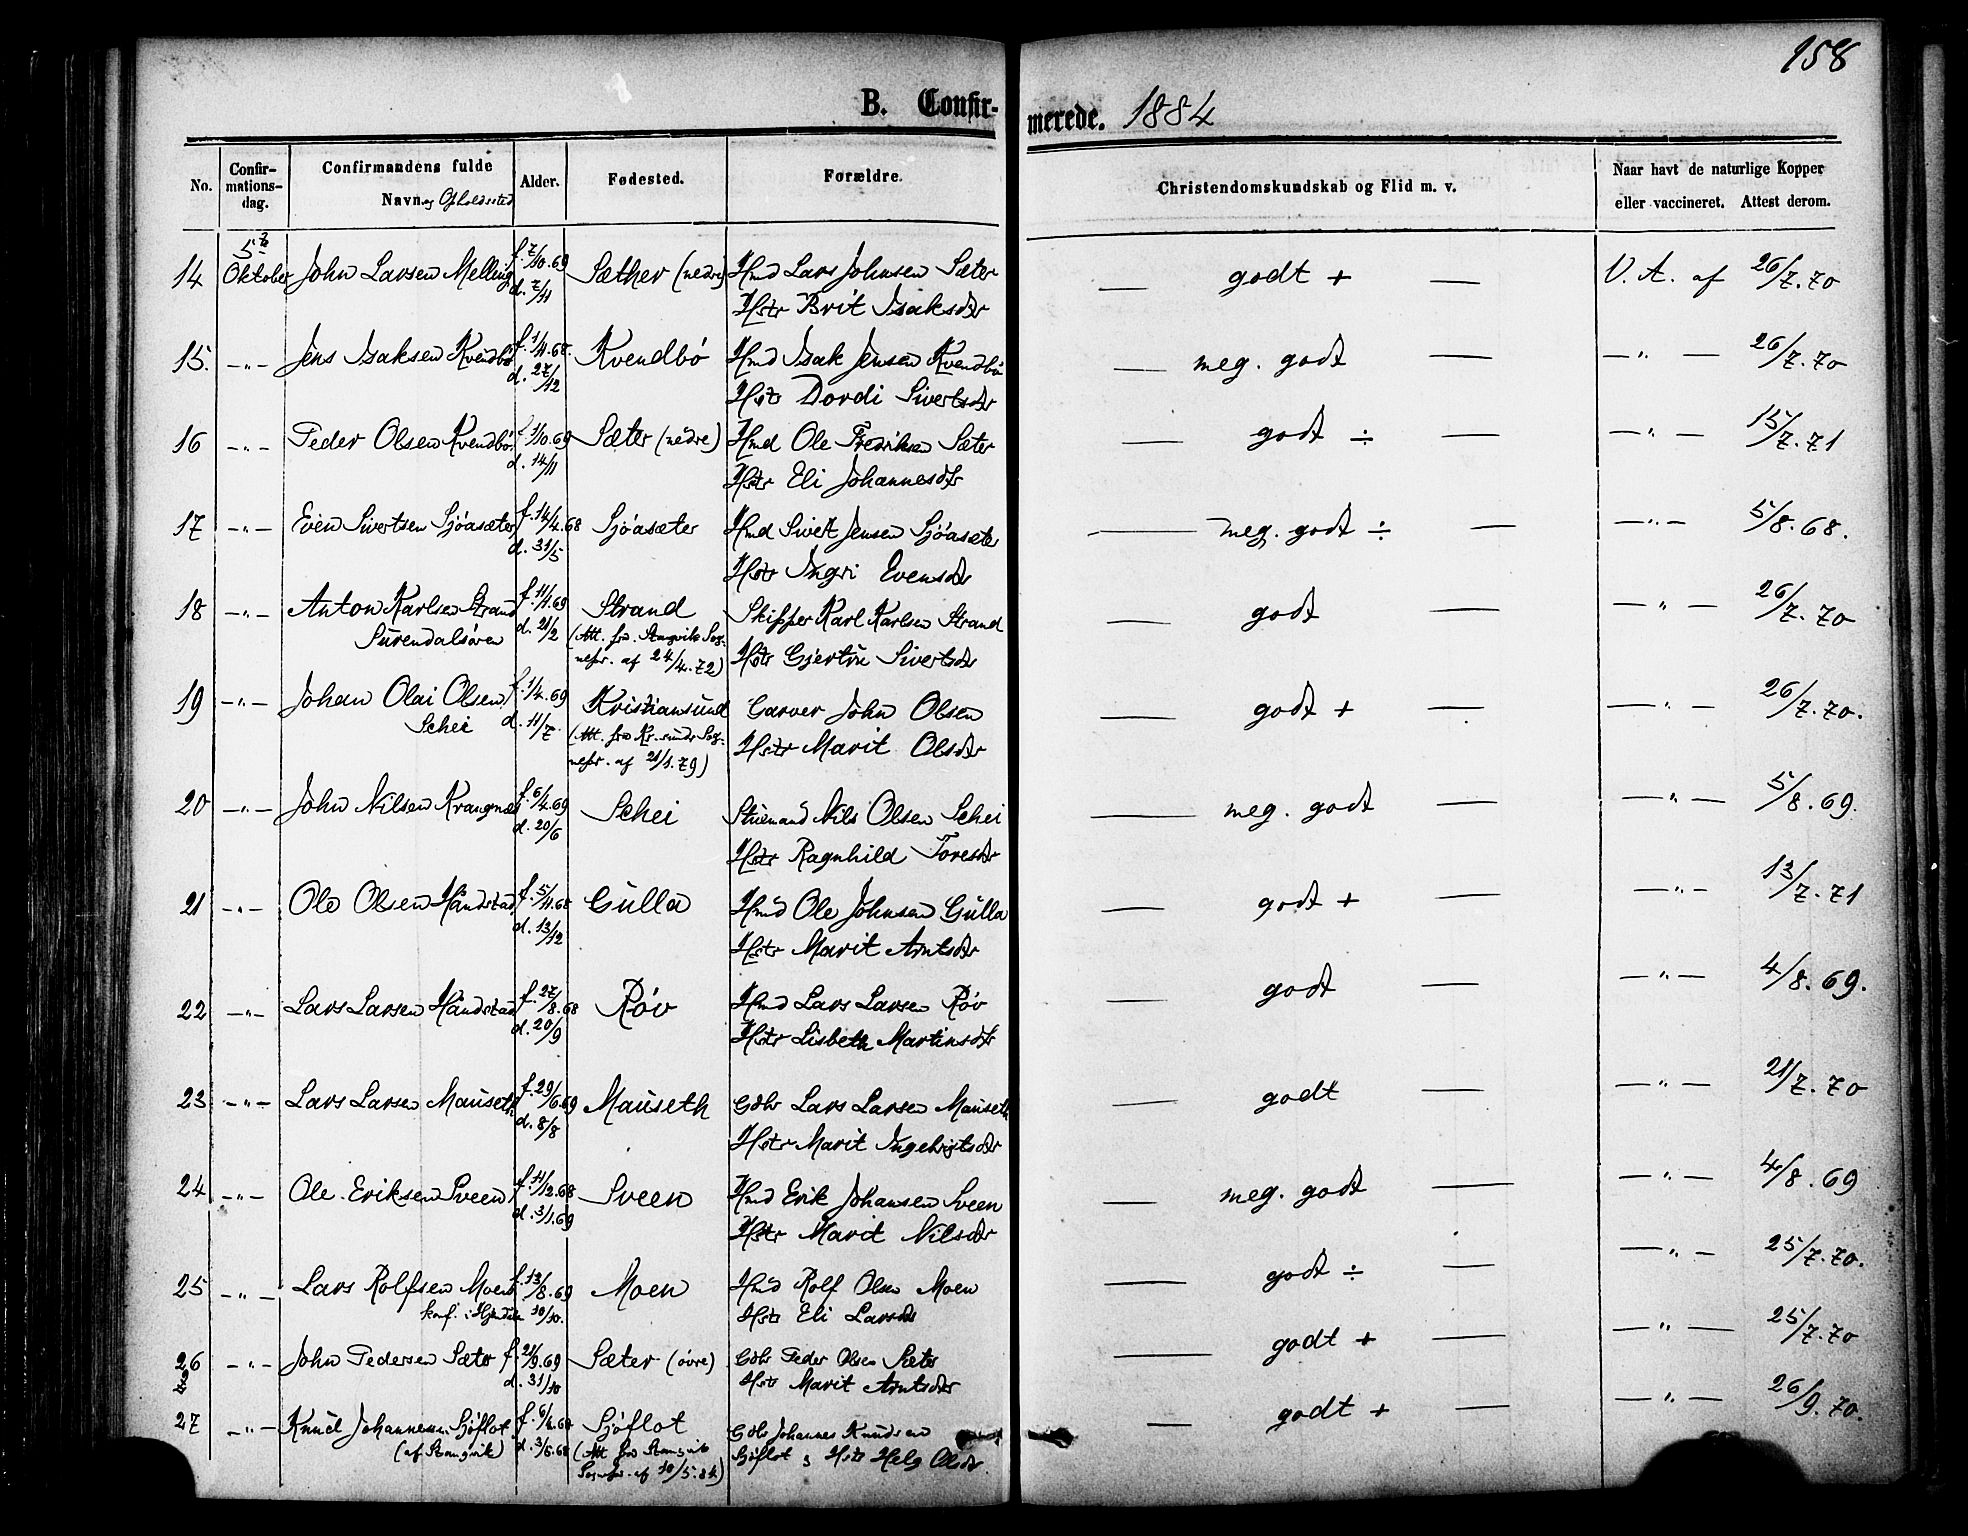 158
B. Confir-
merede. 1884
No.
Confir-
mations-
dag.
Confirmandens fulde
Navn og Opholdssted
Alder.
Fødested.
Forældre.
Christendomskundskab og Flid m. v.
Naar havt de naturlige Kopper
eller vaccineret. Attest derom.
14 5te Oktober John Larsen Melling f. 7/10.69 Sæther (nedre) Hmd Lars Johnsen Sæter — godt + — V. A. af 26/7.70
d. 7/11 Hstr Brit Isaksdtr
15. -"- Jens Isaksen Kvendbø f. 1/11.68. Kvendbö Hmd Isak Jensen Kvendbö — meg. godt — -"- 26/7.70
d. 27/12 Hstr Dordi Sivertsdtr
16 -"- Peder Olsen Kvendbö f. 1/10.69 Sæter (nedre) Hmd Ole Fredriksen Sæter — godt ÷ — -"- 15/7.71
d. 14/11 Hstr Eli Johannesdtr
17 -"- Even Sivertsen Sjöasæter f. 14/4.68 Sjöasæter Hmd Sivert Jensen Sjöasæter — meg. godt ÷ — -"- 5/8.68.
d. 31/5 Hstr Ingri Evensdtr
18 -"- Anton Karlsen Strand f. 11/1.69 Strand Skipper Karl Karlsen Strand — godt — -"- 26/7.70
Surendalsören d. 21/2 (Att. fra Stangvik Sog-
nepr. af 24/4.72) Hstr Gjertru Sivertsdtr
19 -"- Johan Olai Olsen, f. 1/4.69 Kristiansund Garver John Olsen — godt + — -"- 26/7.70.
Schei d. 11/7 (Att. fra Kr.sunds Sog-
nepr. af 21/1.79) Hstr Marit Olsdtr
20 -"- John Nilsen Krangnæs f. 6/4.69 Schei Stuemand Nils Olsen Schei — meg. godt — -"- 5/8.69.
d. 20/6 Hstr Ragnhild Toresdtr
21 -"- Ole Olsen Håndstad f. 5/11.68 Gulla Hmd Ole Johnsen Gulla — godt + — -"- 13/7.71
d. 13/12 Hstr Marit Arntsdtr
22 -"- Lars Larsen Håndstad f. 27/8.68 Röv Hmd Lars Larsen Röv — godt — -"- 4/8.69.
d. 20/9 Hstr Lisbeth Martinsdtr
23 -"- Lars Larsen Mauseth f. 29/6.69 Mauseth Gdbr Lars Larsen Mauseth — godt — -"- 21/7.70
d. 8/8 Hstr Marit Ingebrigtsdtr
24 -"- Ole Eriksen Sveen f. 11/12.68 Sveen Hmd Erik Johansen Sveen — meg. godt — -"- 4/8.69
d. 3/1.69 Hstr Marit Nilsdtr
25 -"- Lars Rolfsen Moen f. 13/8.69 Moen Hmd Rolf Olsen Moen — godt ÷ — -"- 25/7.70.
konf. i 10/10. Hstr Eli Larsdtr
26 -"- John Pedersen Sæter f. 21/9.69 Sæter (övre) Gdbr Peder Olsen Sæter — godt + — -"- 25/7.70
d. 31/10 Hstr Marit Arntsdtr
27 -"- Knud Johannesen Sjöflot f. 6/4.68 Sjöflot Gdbr Johannes Knudsen — godt + — -"- 26/9.70.
(af Stangvik) d. 3/5.68 (Att fra Stangvik Sjöflot og Hstr Helg Olsdtr
Sognepr. af 10/5.84)